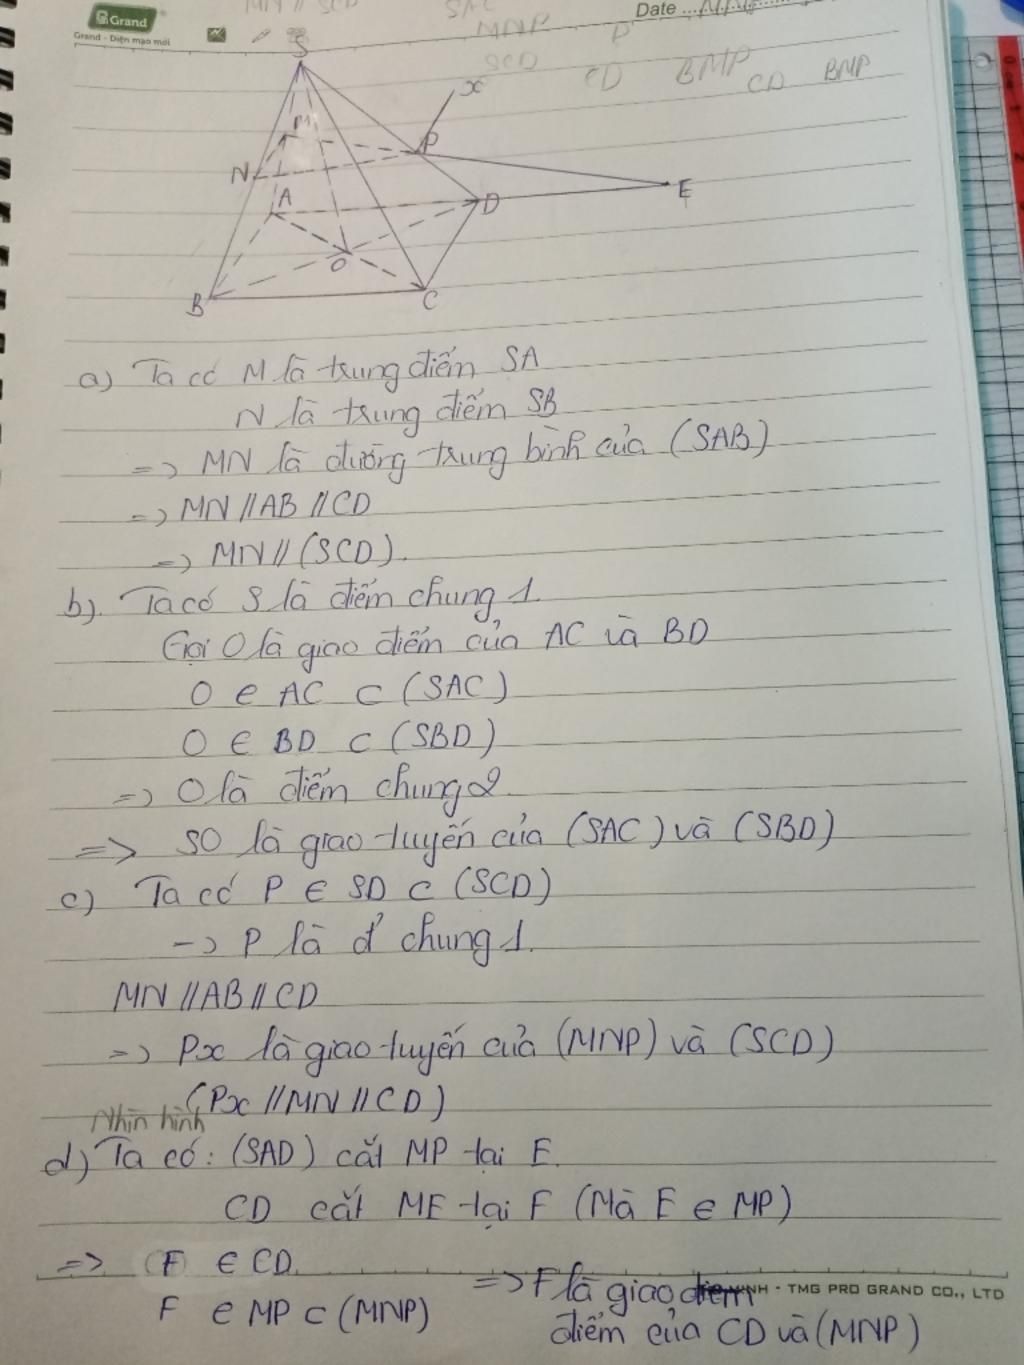 Grand
Grand - Diện mạo mới
Date
MN // SCD
SAC
MNP
P
SCD
CD
BMP
CD
BNP
S
x
M
P
N
A
D
E
O
B
C
a) Ta có M là trung điểm SA
N là trung điểm SB
=> MN là đường trung bình của (SAB)
=> MN // AB // CD
=> MN // (SCD).
b). Ta có S là điểm chung 1.
Gọi O là giao điểm của AC và BD
O ∈ AC ⊂ (SAC)
O ∈ BD ⊂ (SBD)
=> O là điểm chung 2
=> SO là giao tuyến của (SAC) và (SBD)
c) Ta có P ∈ SD ⊂ (SCD)
-> P là đ' chung 1.
MN // AB // CD
=> Px là giao tuyến của (MNP) và (SCD)
(Px // MN // CD)
Nhìn hình
d) Ta có: (SAD) cắt MP tại E.
CD cắt ME tại F (Mà E ∈ MP)
=> F ∈ CD
F ∈ MP ⊂ (MNP)
=> F là giao
điểm của CD và (MNP)
NH - TMG PRO GRAND CO., LTD